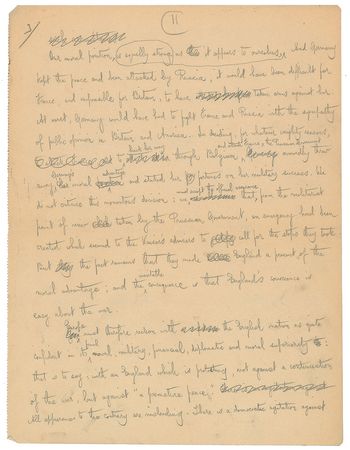 2/
11
Our moral position, is equally strong as it appears to ourselves. Had Germany
kept the peace and been attacked by Russia, it would have been difficult for
France, and impossible for Britain, to have taken arms against her.
At most, Germany would have had to fight France and Russia with the sympathy
of public opinion in Britain and America. In sending, for whatever military reasons,
through Belgium, Germany
moral advantage and staked her fortunes on her military success. We
do not criticise this momentous decision: that, from the militarist
point of view taken by the Prussian Government, an emergency had been
created which seemed to the Kaiser's advisers to call for the steps they took.
But the fact remains that they made England a present of the
moral advantage; and the inevitable consequence is that England's conscience is
easy about the war.
Europe must therefore reckon with the English nation as quite
confident in its moral, military, financial, diplomatic and moral superiority:
that is to say, with an England which is not against a continuation
of the war, but against "a premature peace."
All appearances to the contrary are misleading. There is a democratic agitation against